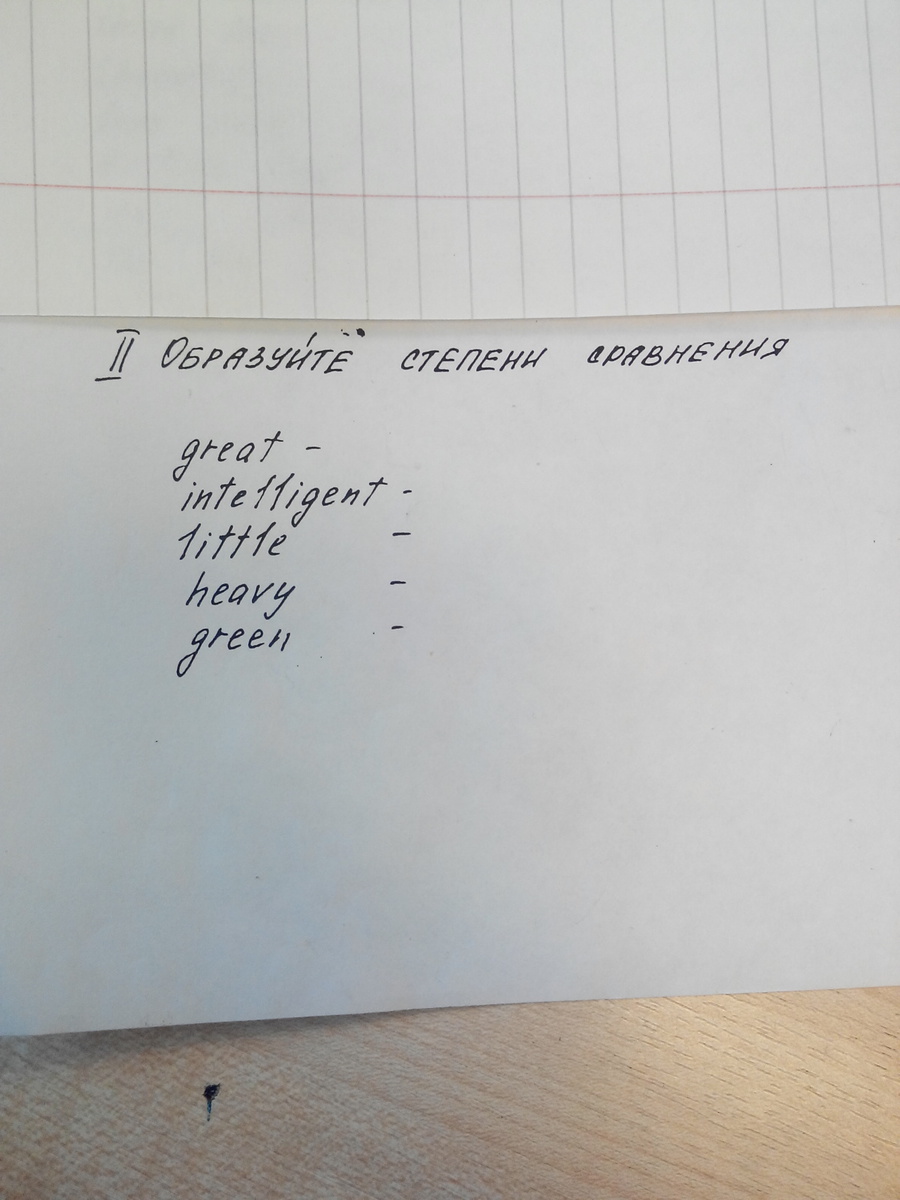 II Образуйте степени сравнения
great -
intelligent -
little -
heavy -
green -